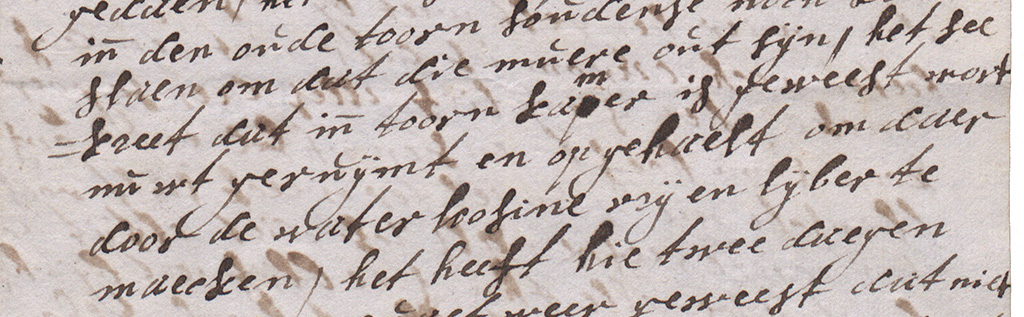 in den oude toorn soudense noch
slaen om dat die muere out sijn / het sec
=kreet dat in toorn kamer is geweest wort
nu wt geruijmt en opgehaelt om daer
door de water loosine vrij en lijber te
maecken / het heeft hie twee daegen
weer geweest dat niet